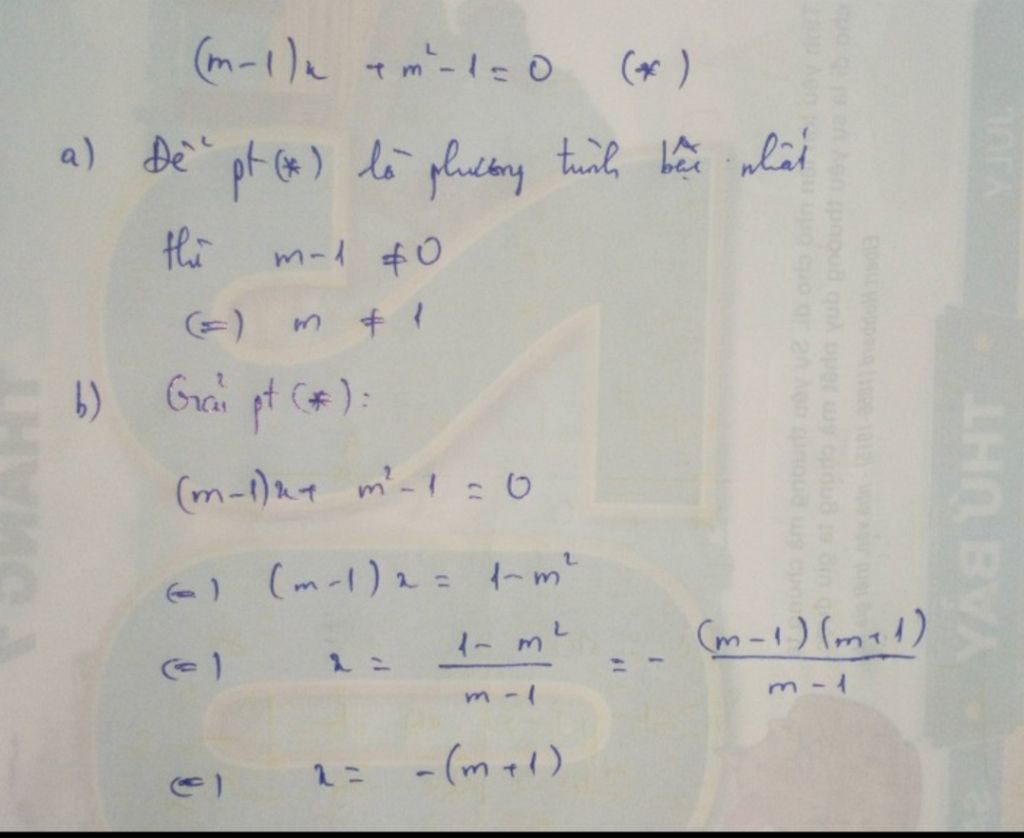 (m-1)x + m²-1 = 0 (*)
a) Để pt (*) là phương trình bậc nhất
thì m-1 ≠ 0
(=) m ≠ 1
b) Giải pt (*):
(m-1)x + m²-1 = 0
(=) (m-1)x = 1-m²
(=) x = \frac{1-m²}{m-1} = - \frac{(m-1)(m+1)}{m-1}
(=) x = -(m+1)
JULY
THỨ BẢY